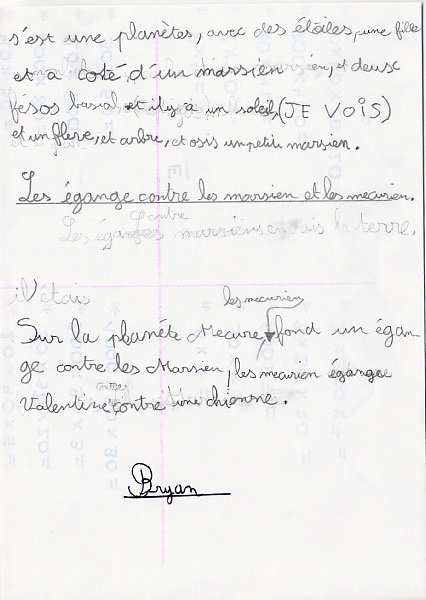 s'est une planètes, avec des étoiles, une fille
et a coté, d'un marsien, et deusc
fésos basial et il y a un soleil, (JE VOIS)
et un flere, et arbre, et osis un petit marsien.
Les égange contre les marsien et les mecurien.
contre
Les éganges marsiens et la terre.
il étais
les mecuriens
Sur la planéte Mecure, fond un égan-
ge contre les Marsien, les mecurien égange
contre
Valentine contre une chienne.
Bryan